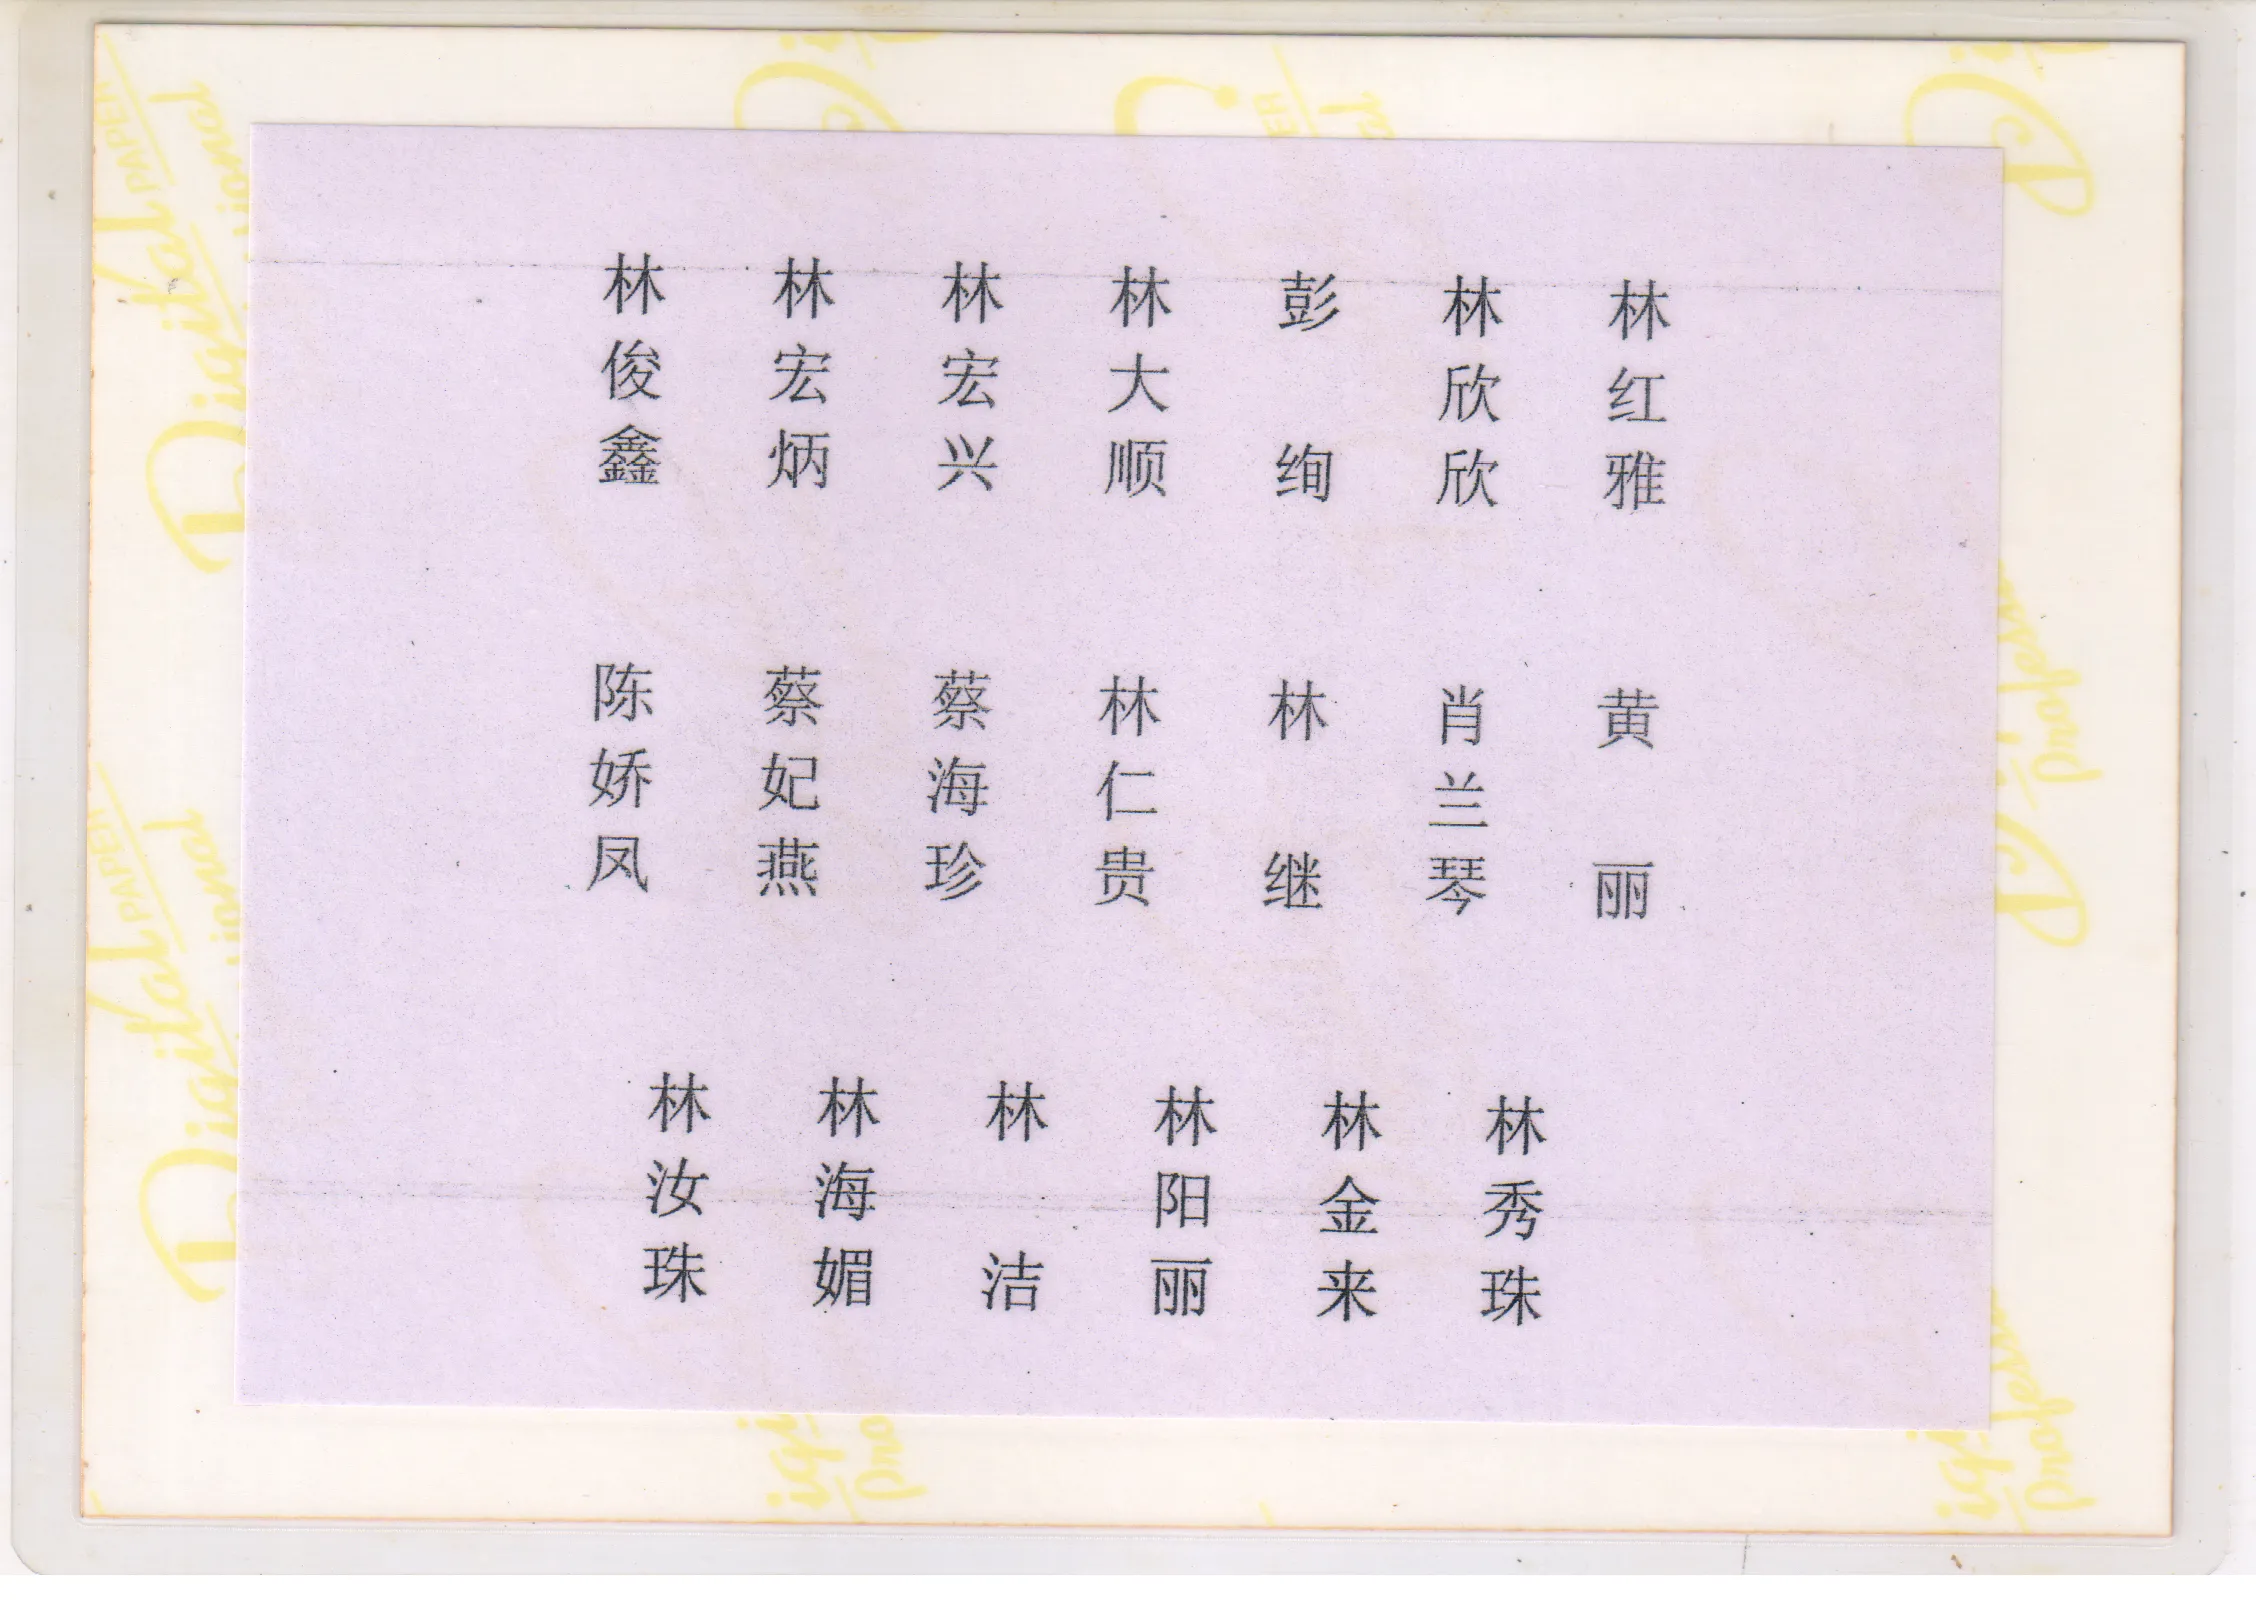 林俊鑫
林宏炳
林宏兴
林大顺
彭绚
林欣欣
林红雅
陈娇凤
蔡妃燕
蔡海珍
林仁贵
林继
肖兰琴
黄丽
林汝珠
林海媚
林洁
林阳丽
林金来
林秀珠
Digital
PAPER
Professional